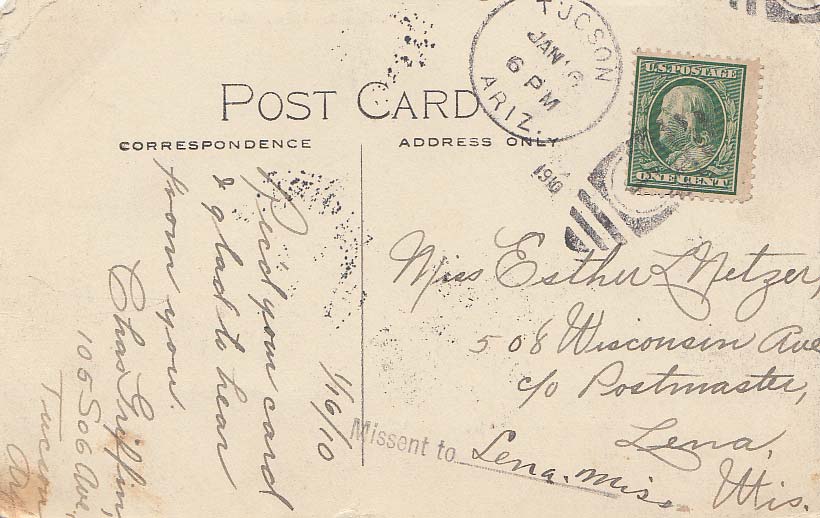 POST CARD
CORRESPONDENCE
ADDRESS ONLY
TUCSON
JAN 16
6 PM
ARIZ.
1910
U.S. POSTAGE
ONE CENT
1/16/10
Rec'd your card
& glad to hear
from you.
Chas Griffin,
105 So 6 Ave,
Tucson
Ariz
Miss Esther L Metzer,
508 Wisconsin Ave
c/o Postmaster,
Lena,
Wis.
Missent to Lena. Miss